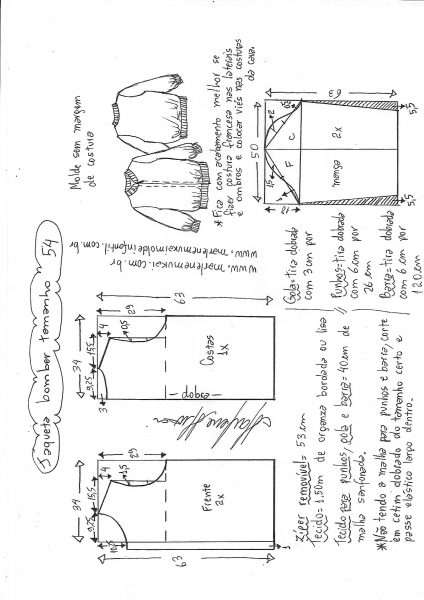 Jaqueta bomber tamanho 54
Molde sem margem
de costura
www.marlenemukai.com.br
www.marlenemukaimoldeinfantil.com.br
* Fica com acabamento melhor se
fizer costura francesa nas laterais
e ombros e colocar viés nas costuras
da cava.
34
9,25
15,5
4
1,5
29
10,25
63
Frente
2x
34
9,25
15,5
3
4
0,5
29
63
Costas
1x
dobra
50
12
1,5
2
63
F
C
manga
2x
5,5
5,5
Gola=tira dobrada
com 3cm por
Punhos=tira dobrada
com 6cm por
26cm
Barra=tira dobrada
com 6cm por
120cm
Zíper removível= 53cm
Tecido= 1,50m de organza bordada ou lisa
Tecido para punhos, gola e barra= 40cm de
malha sanfonada.
* Não tendo a malha para punhos e barra, corte
em cetim dobrado do tamanho certo e
passe elástico largo dentro.